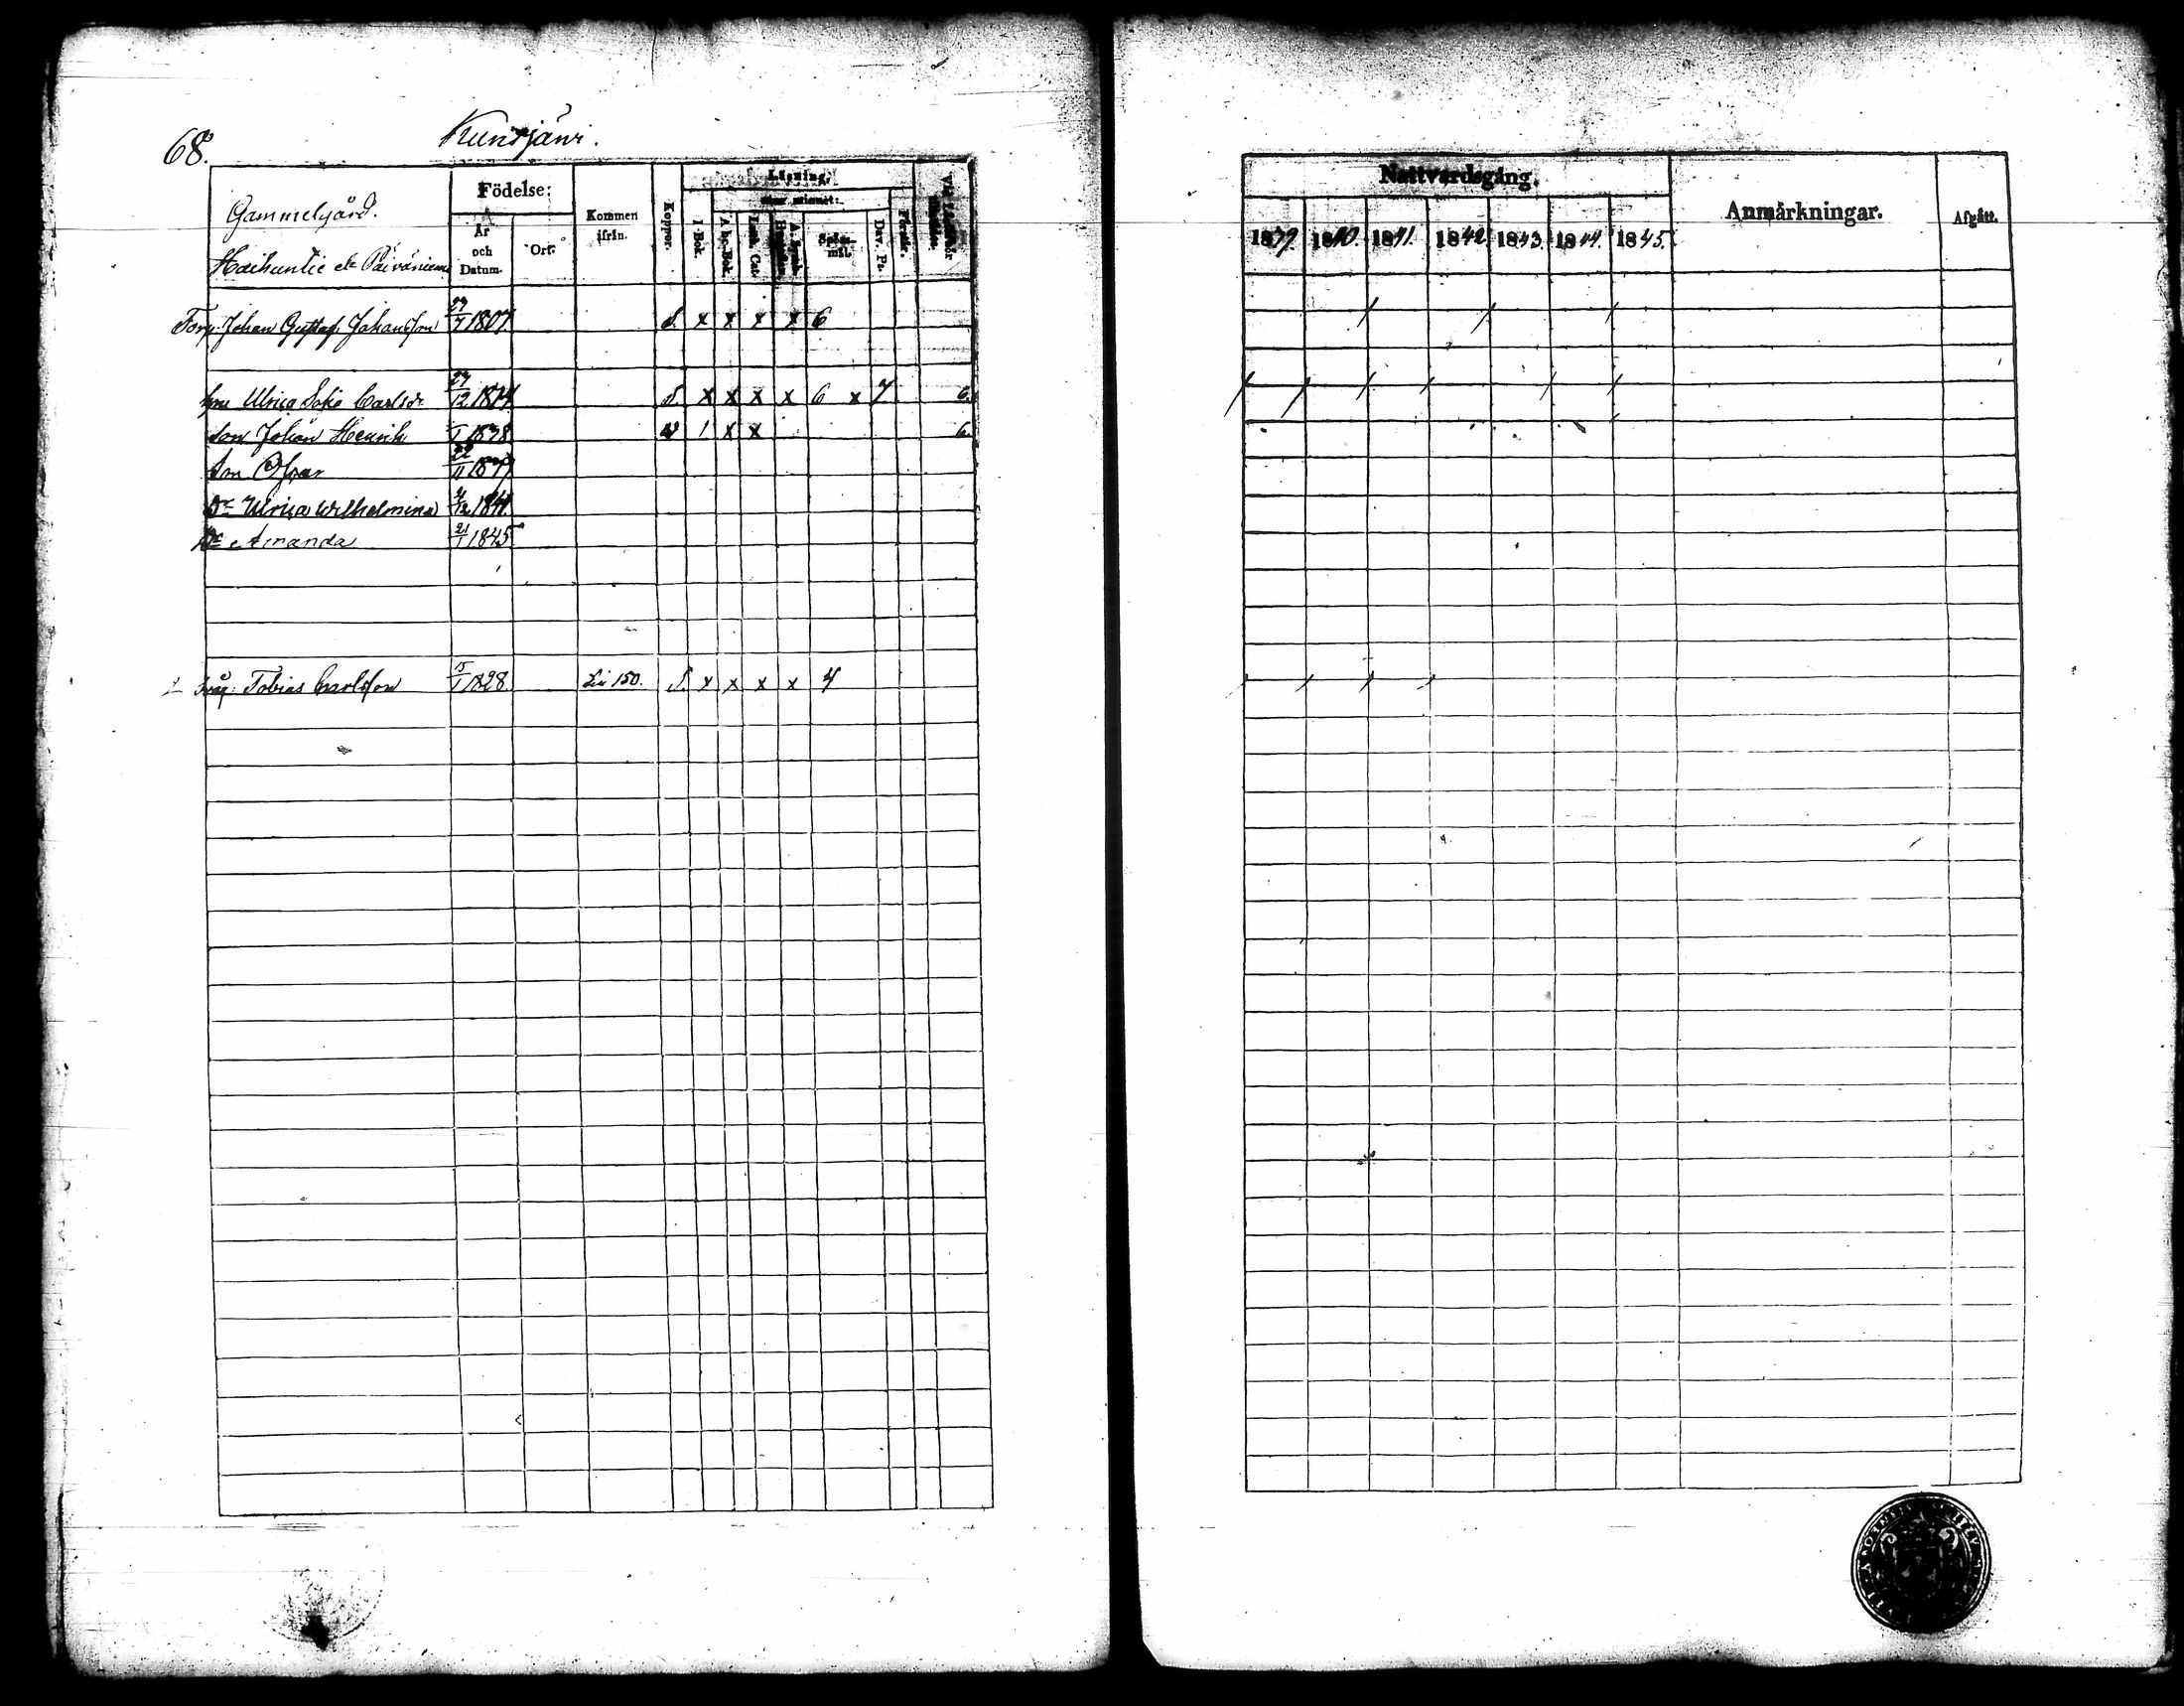 68.
Kuhajärvi.
Gammelgård.
Haihuntie el. Päivänieme
Födelse:
År och Datum.
Ort.
Kommen ifrån.
Koppor.
Läsning.
I Bok.
A bc-Bok.
Luth. Cat.
Spörsmål.
Dav. Ps.
Förstår.
Torp. Johan Gustaf Johansson 27/7 1807. S. x x x x 6
hu Ulrica Sofia Carlsdr 27/12 1814 S. x x x x 6 x 7 6.
son Johan Henrik 1838 w 1 x x 6.
Son Oskar 22/11 1839
Dr Ulrica Wilhelmina 4/12 1841.
Dr Amanda 21/1 1845
Svåg: Tobias Carlsson 15/1 1828. Lit 150. S. x x x x 4
Nattvardsgång.
1839. 1840. 1841. 1842. 1843. 1844. 1845.
Anmärkningar.
Afgått.